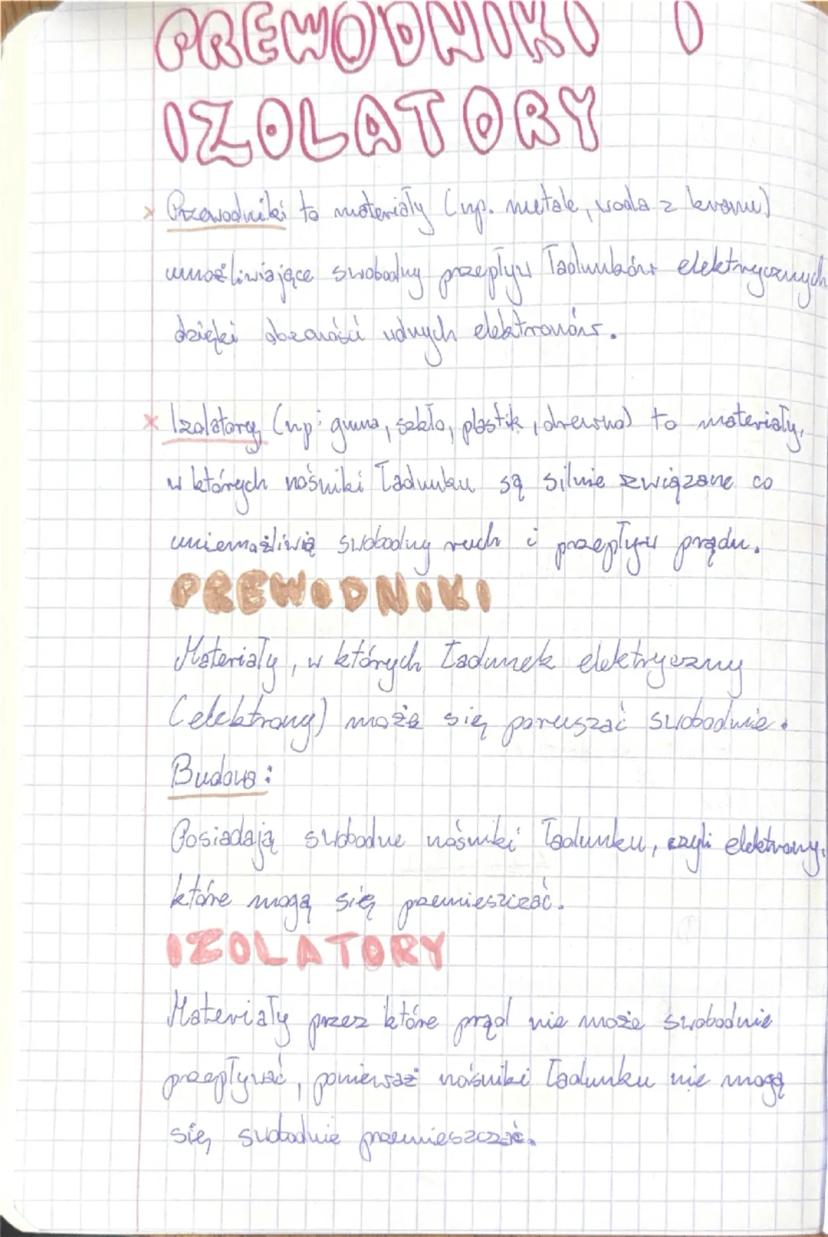 PREWODNIKI I
IZOLATORY
x Przewodniki to materiały (np. metale, woda z kranu)
umożliwiające swobodny przepływ ładunków elektrycznych
dzięki obecności wolnych elektronów.
x Izolatory (np: guma, szkło, plastik, drewno) to materiały,
w których nośniki ładunku są silnie związane co
uniemożliwia swobodny ruch i przepływ prądu.
PREWODNIKI
Materiały, w których ładunek elektryczny
(elektrony) może się poruszać swobodnie.
Budowa:
Posiadają swobodne nośniki ładunku, czyli elektrony,
które mogą się przemieszczać.
IZOLATORY
Materiały przez które prąd nie może swobodnie
przepływać, ponieważ nośniki ładunku nie mogą
się swobodnie przemieszczać.